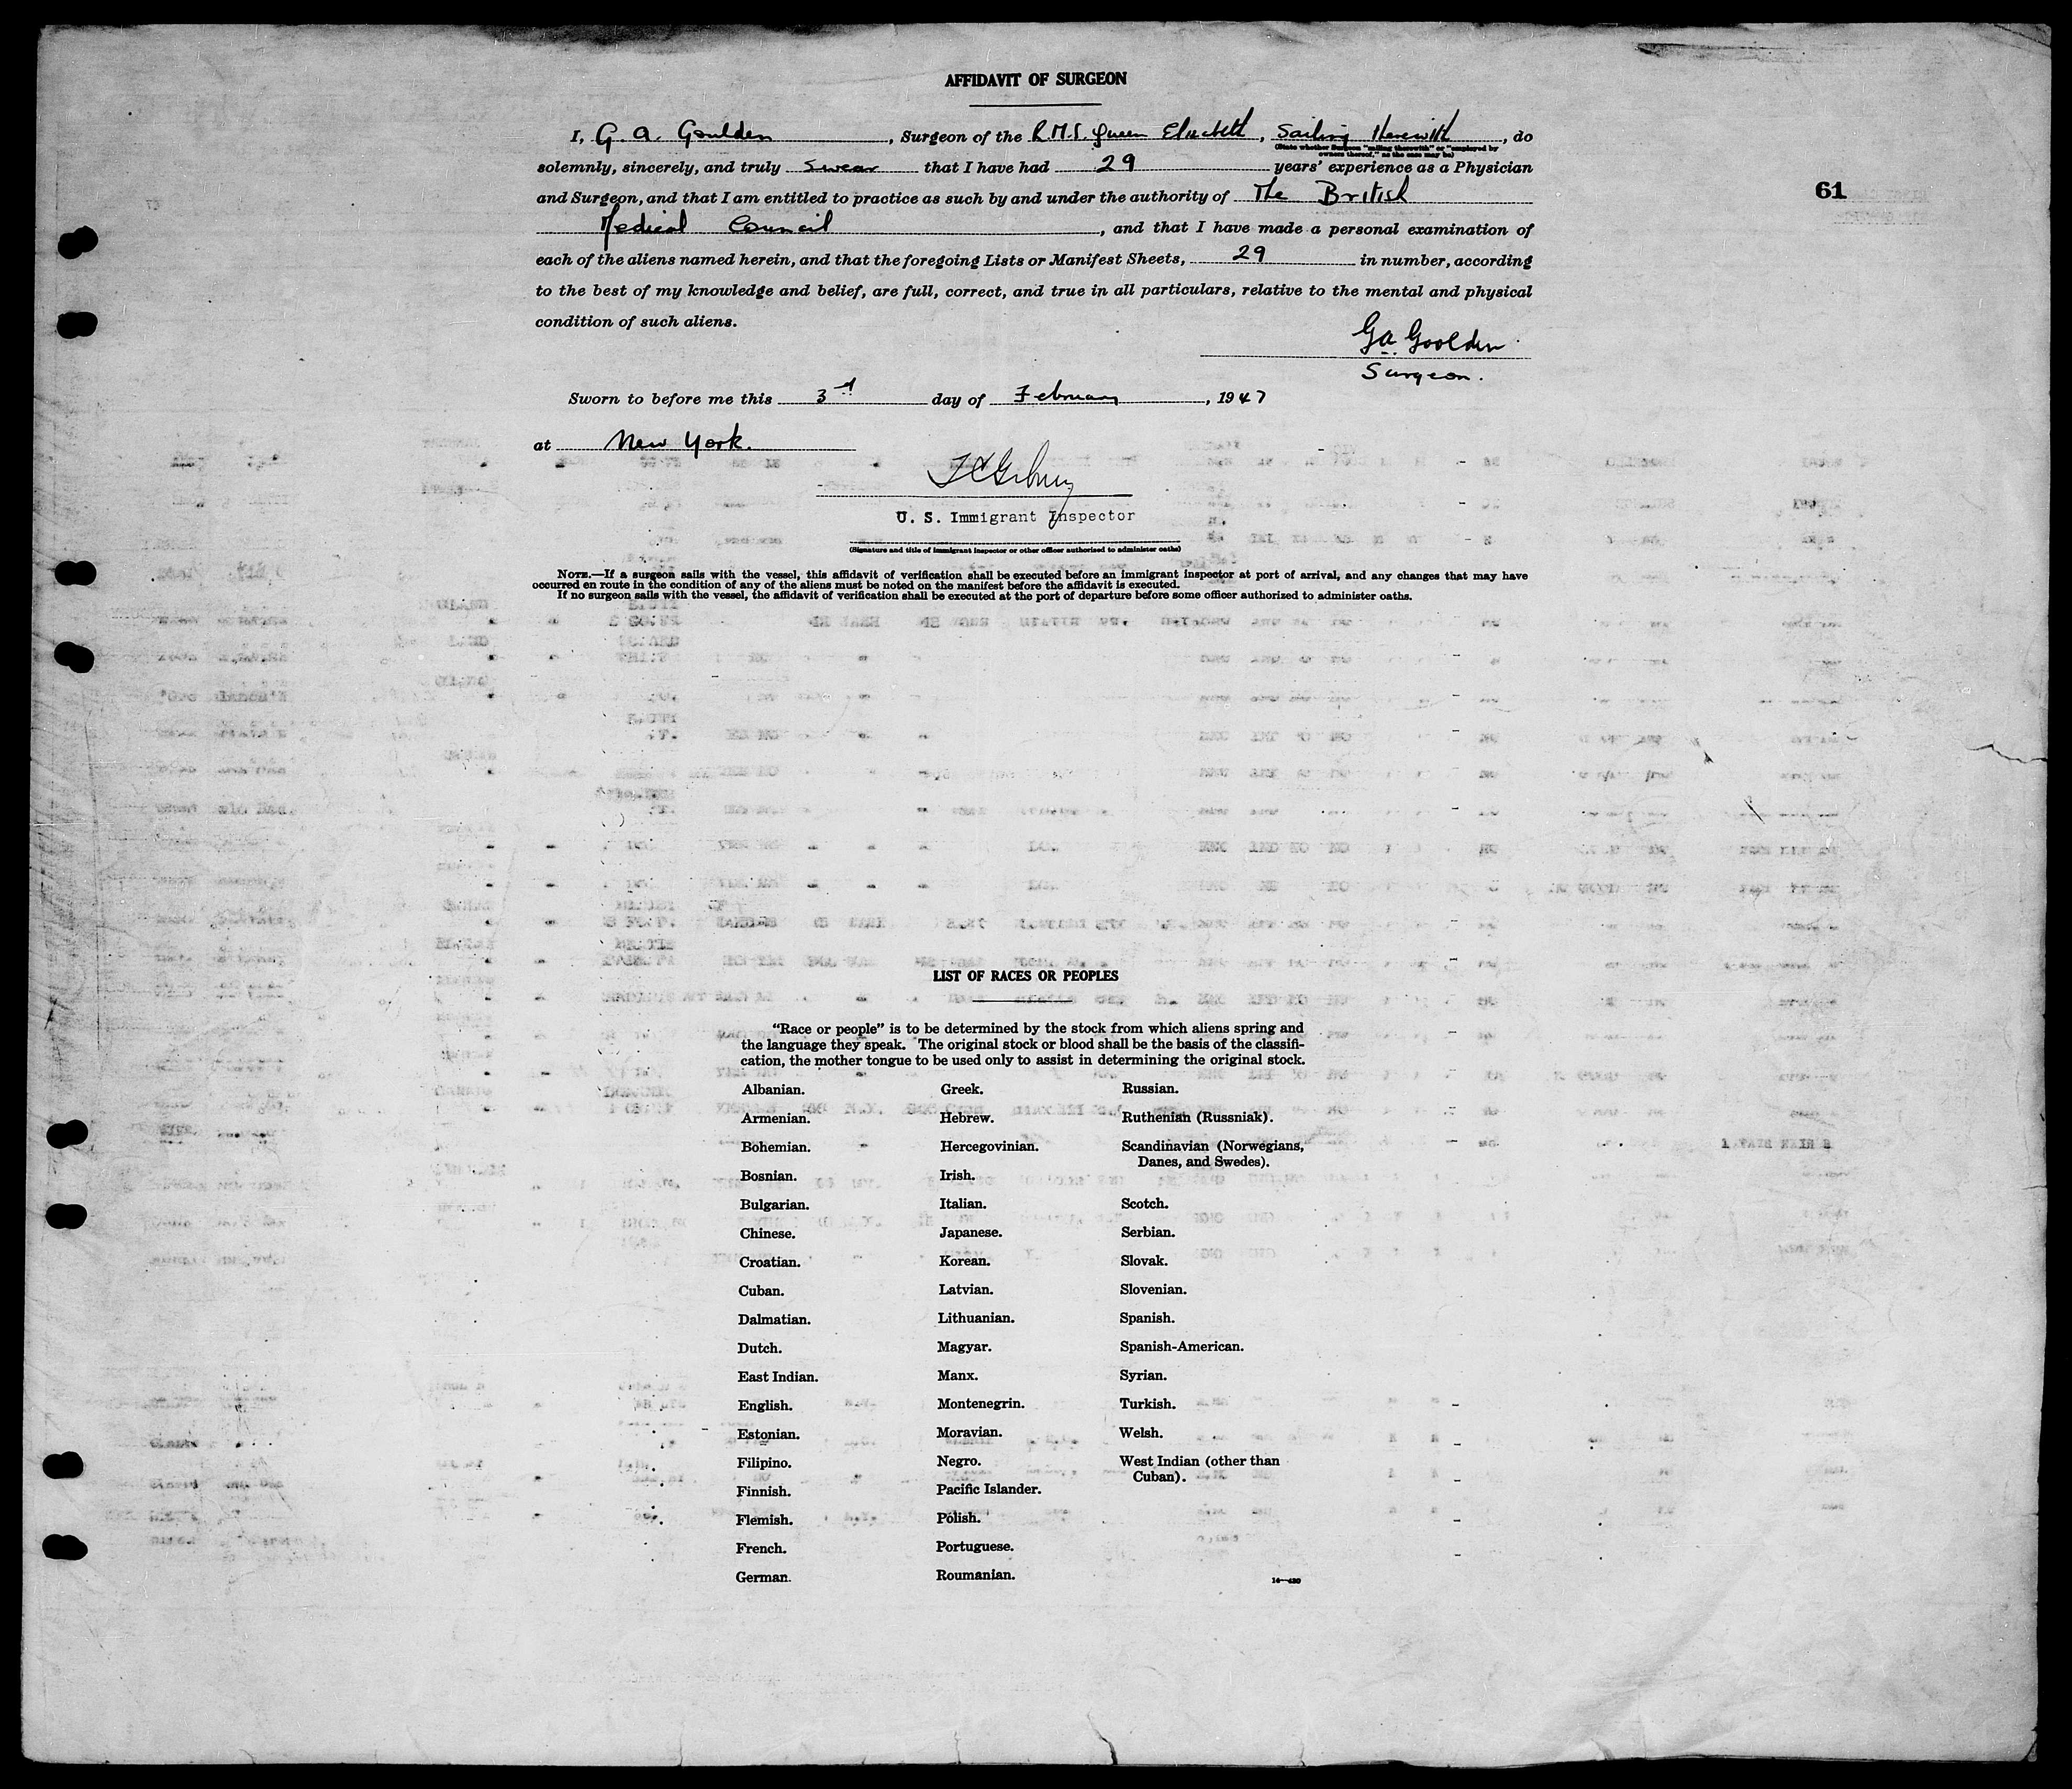 AFFIDAVIT OF SURGEON
I, G. A. Goulden, Surgeon of the R.M.S. Queen Elizabeth, Sailing Herewith, do
(State whether Surgeon "sailing therewith" or "employed by
owners thereof," as the case may be)
solemnly, sincerely, and truly swear that I have had 29 years' experience as a Physician
and Surgeon, and that I am entitled to practice as such by and under the authority of The British
61
Medical Council, and that I have made a personal examination of
each of the aliens named herein, and that the foregoing Lists or Manifest Sheets, 29 in number, according
to the best of my knowledge and belief, are full, correct, and true in all particulars, relative to the mental and physical
condition of such aliens.
GA Goolden
Surgeon.
Sworn to before me this 3rd day of February, 1947
at New York.
U. S. Immigrant Inspector
(Signature and title of immigrant inspector or other officer authorized to administer oaths)
NOTE.—If a surgeon sails with the vessel, this affidavit of verification shall be executed before an immigrant inspector at port of arrival, and any changes that may have
occurred en route in the condition of any of the aliens must be noted on the manifest before the affidavit is executed.
If no surgeon sails with the vessel, the affidavit of verification shall be executed at the port of departure before some officer authorized to administer oaths.
LIST OF RACES OR PEOPLES
"Race or people" is to be determined by the stock from which aliens spring and
the language they speak. The original stock or blood shall be the basis of the classifi-
cation, the mother tongue to be used only to assist in determining the original stock.
Albanian.
Armenian.
Bohemian.
Bosnian.
Bulgarian.
Chinese.
Croatian.
Cuban.
Dalmatian.
Dutch.
East Indian.
English.
Estonian.
Filipino.
Finnish.
Flemish.
French.
German.
Greek.
Hebrew.
Hercegovinian.
Irish.
Italian.
Japanese.
Korean.
Latvian.
Lithuanian.
Magyar.
Manx.
Montenegrin.
Moravian.
Negro.
Pacific Islander.
Polish.
Portuguese.
Roumanian.
Russian.
Ruthenian (Russniak).
Scandinavian (Norwegians,
Danes, and Swedes).
Scotch.
Serbian.
Slovak.
Slovenian.
Spanish.
Spanish-American.
Syrian.
Turkish.
Welsh.
West Indian (other than
Cuban).